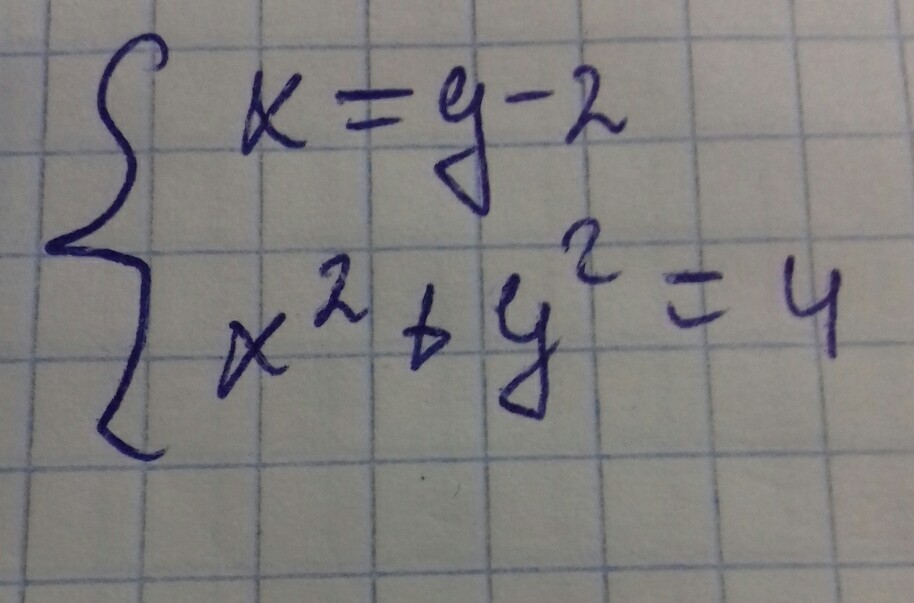 x = y - 2
x² + y² = 4